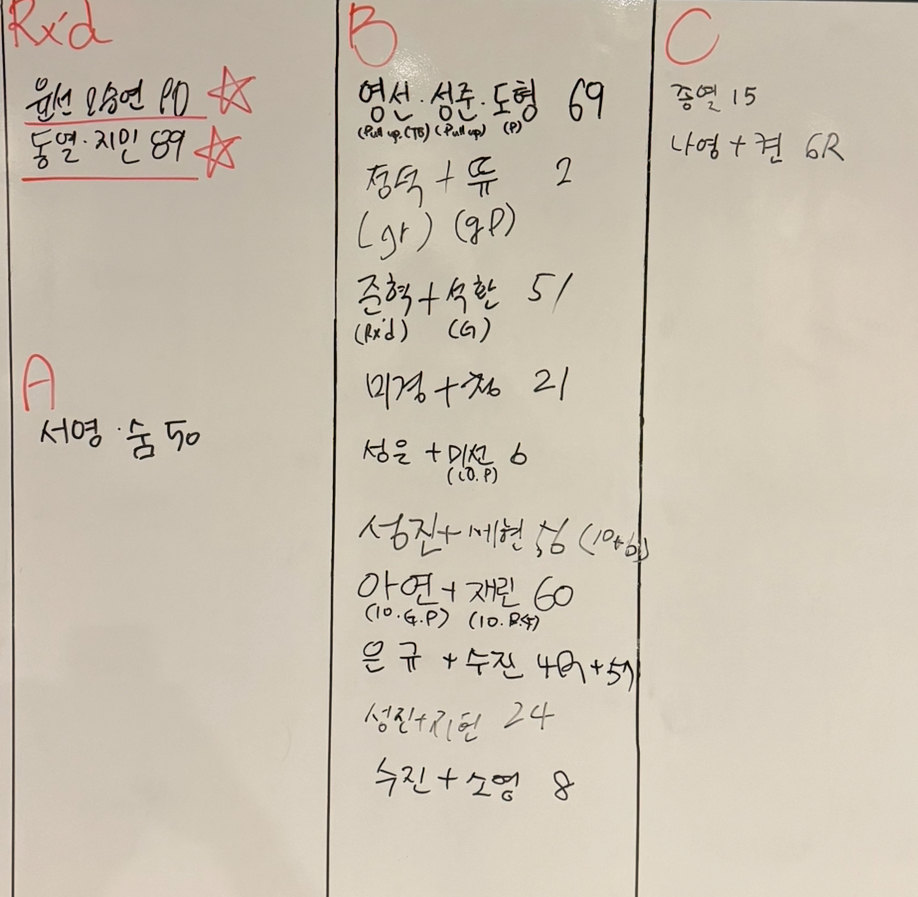 Rx'd
윤선 오승연 90
동열·지민 89
A
서영·숨 50
B
영선·성준·도형 69
(Pull up.(TB) (Pull up) (P)
정덕 + 뜌 2
(gr) (gP)
준혁 + 석환 51
(Rx'd) (G)
미경 + 청 21
성은 + 미선 6
(10.P)
성진 + 세현 56
아연 + 재린 60
(10.G.P) (10.
은규 + 수진
성진 + 지현 24
수진 + 소영 8
C
종열 15
나영 + 켠 6R